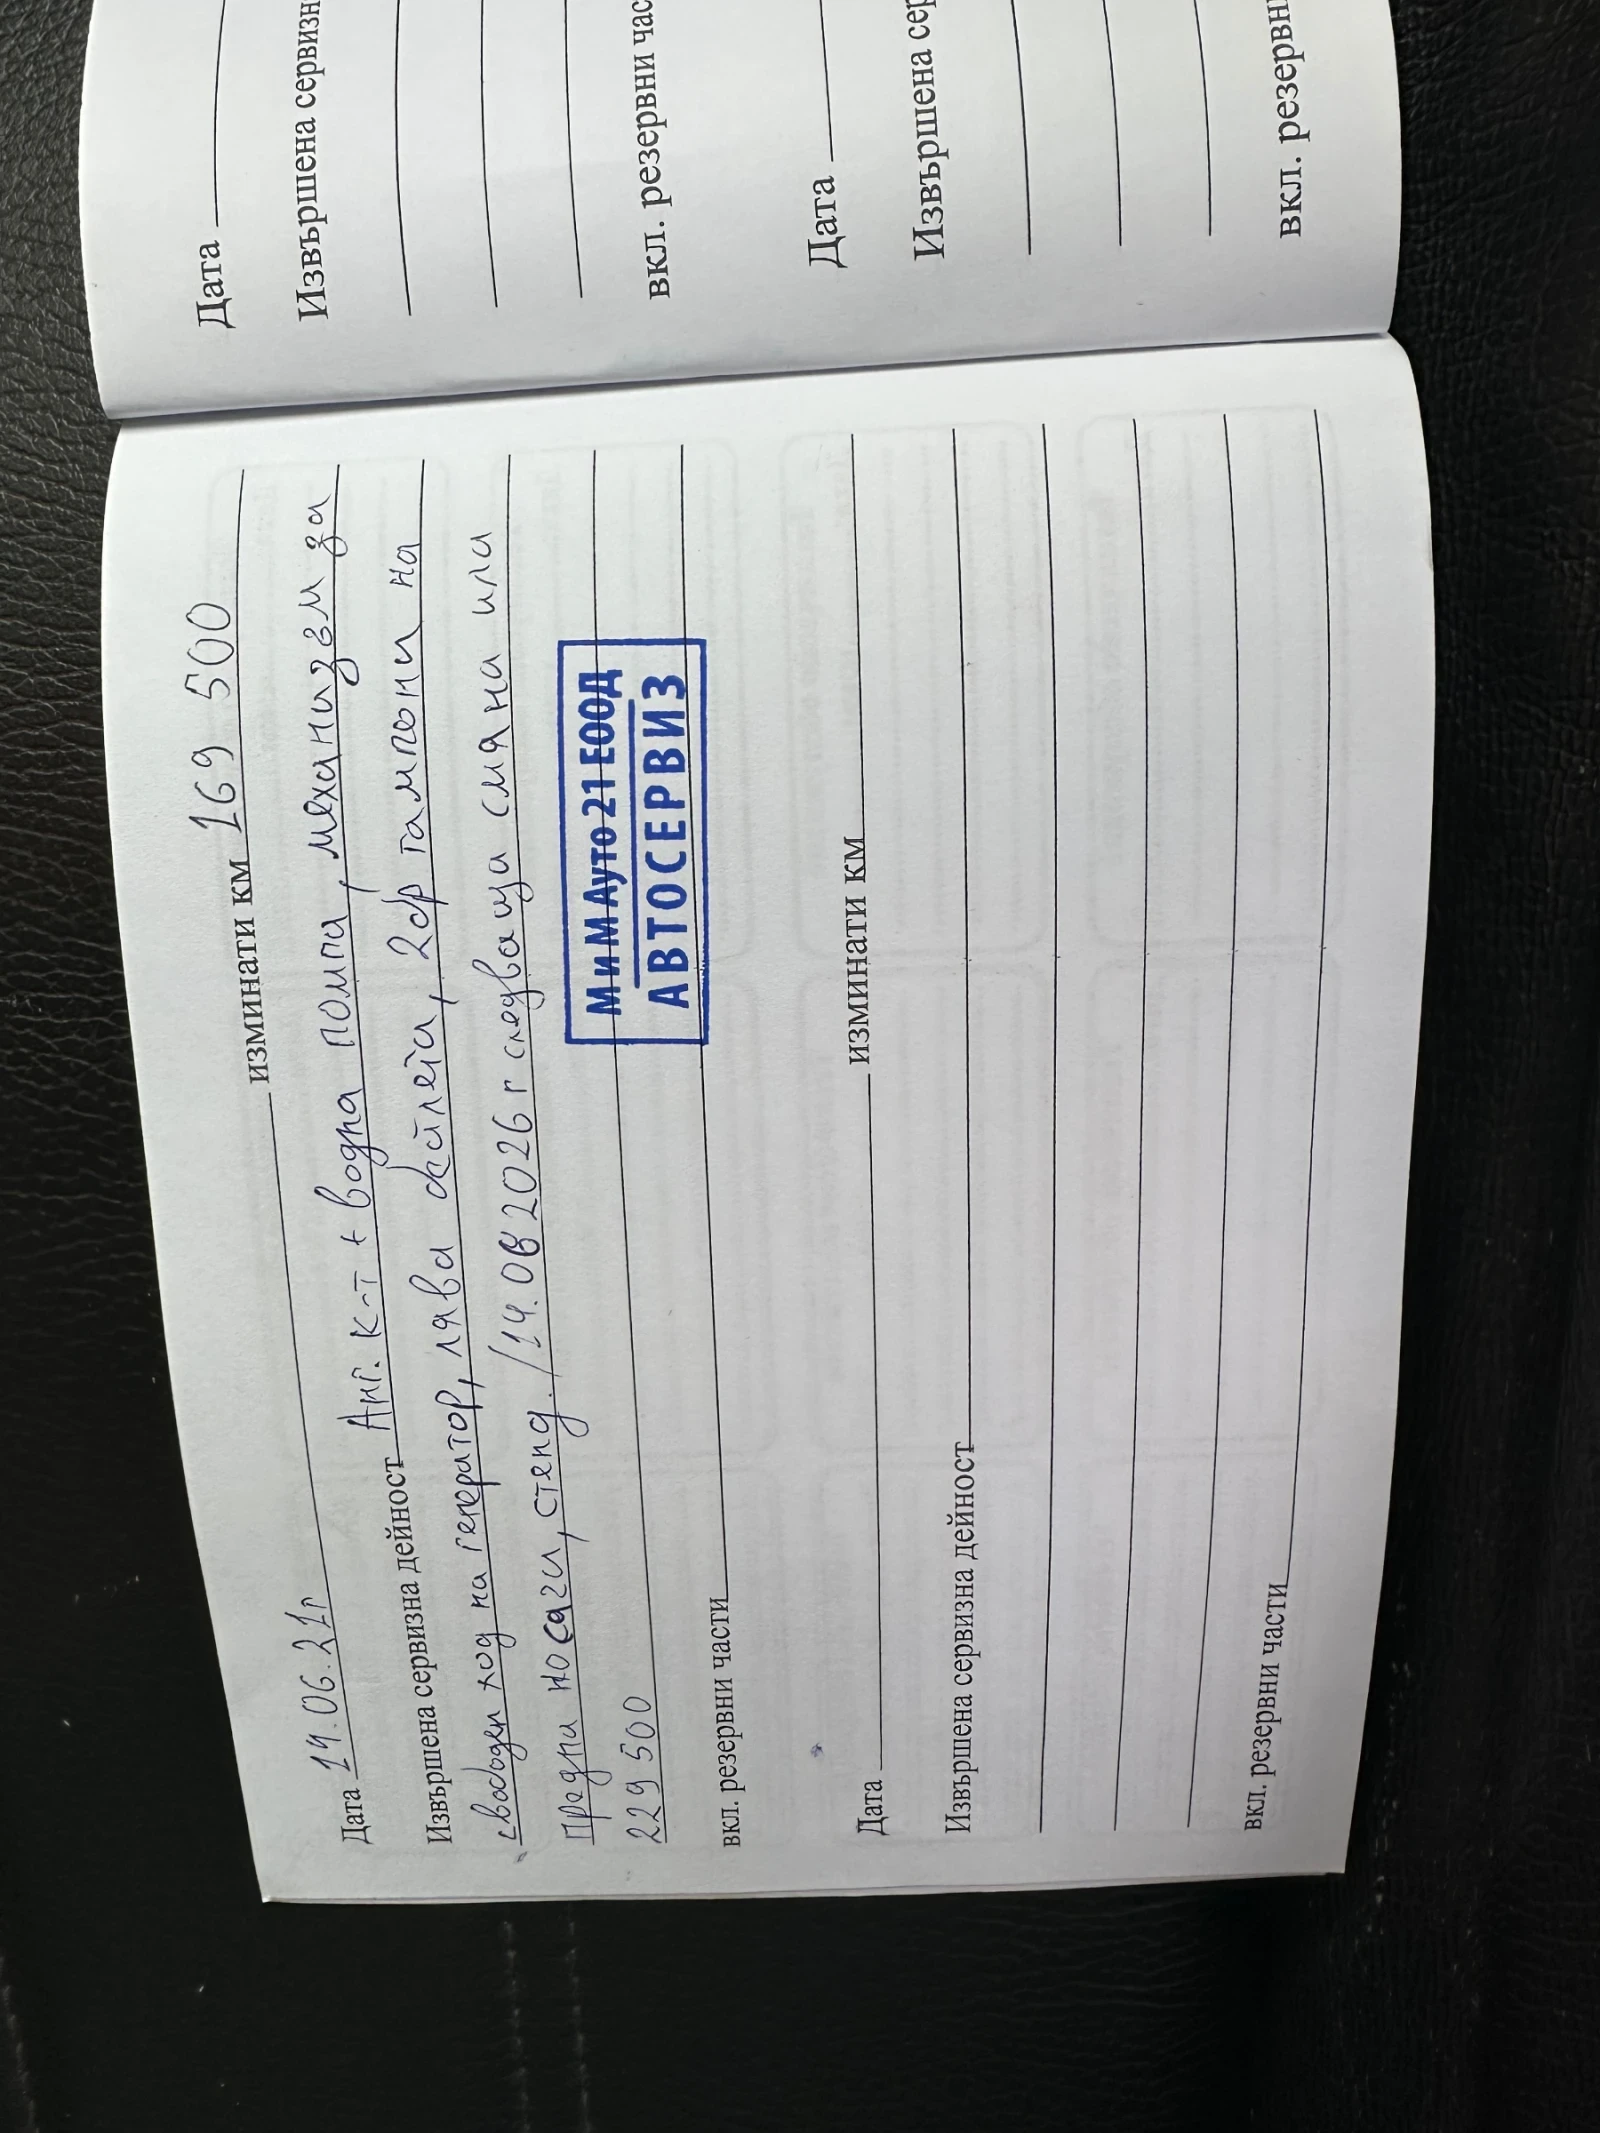 Дата 14.06.21г изминати км 169 500
Извършена сервизна дейност Анг. к-т + водна помпа, механизъм за
свободен ход на генератор, лява ябълка, 2бр тампони на
Предни носачи, стенд. / 14.06 2026 г следваща смяна или
229 500
МиМ Ауто 21 ЕООД
АВТОСЕРВИЗ
вкл. резервни части
Дата изминати км
Извършена сервизна дейност
вкл. резервни части
Дата
Извършена сервизн
вкл. резервни час
Дата
Извършена сер
вкл. резервн